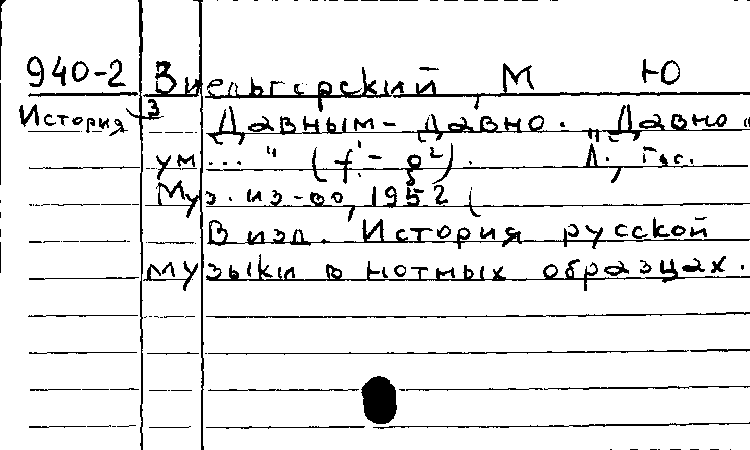 940-2 Виельгорский, М Ю
История 3 Давным-давно. „Давно
ум..." (f'-g²). Л., Гос.
Муз. из-во, 1952 (
В изд. История русской
музыки в нотных образцах.